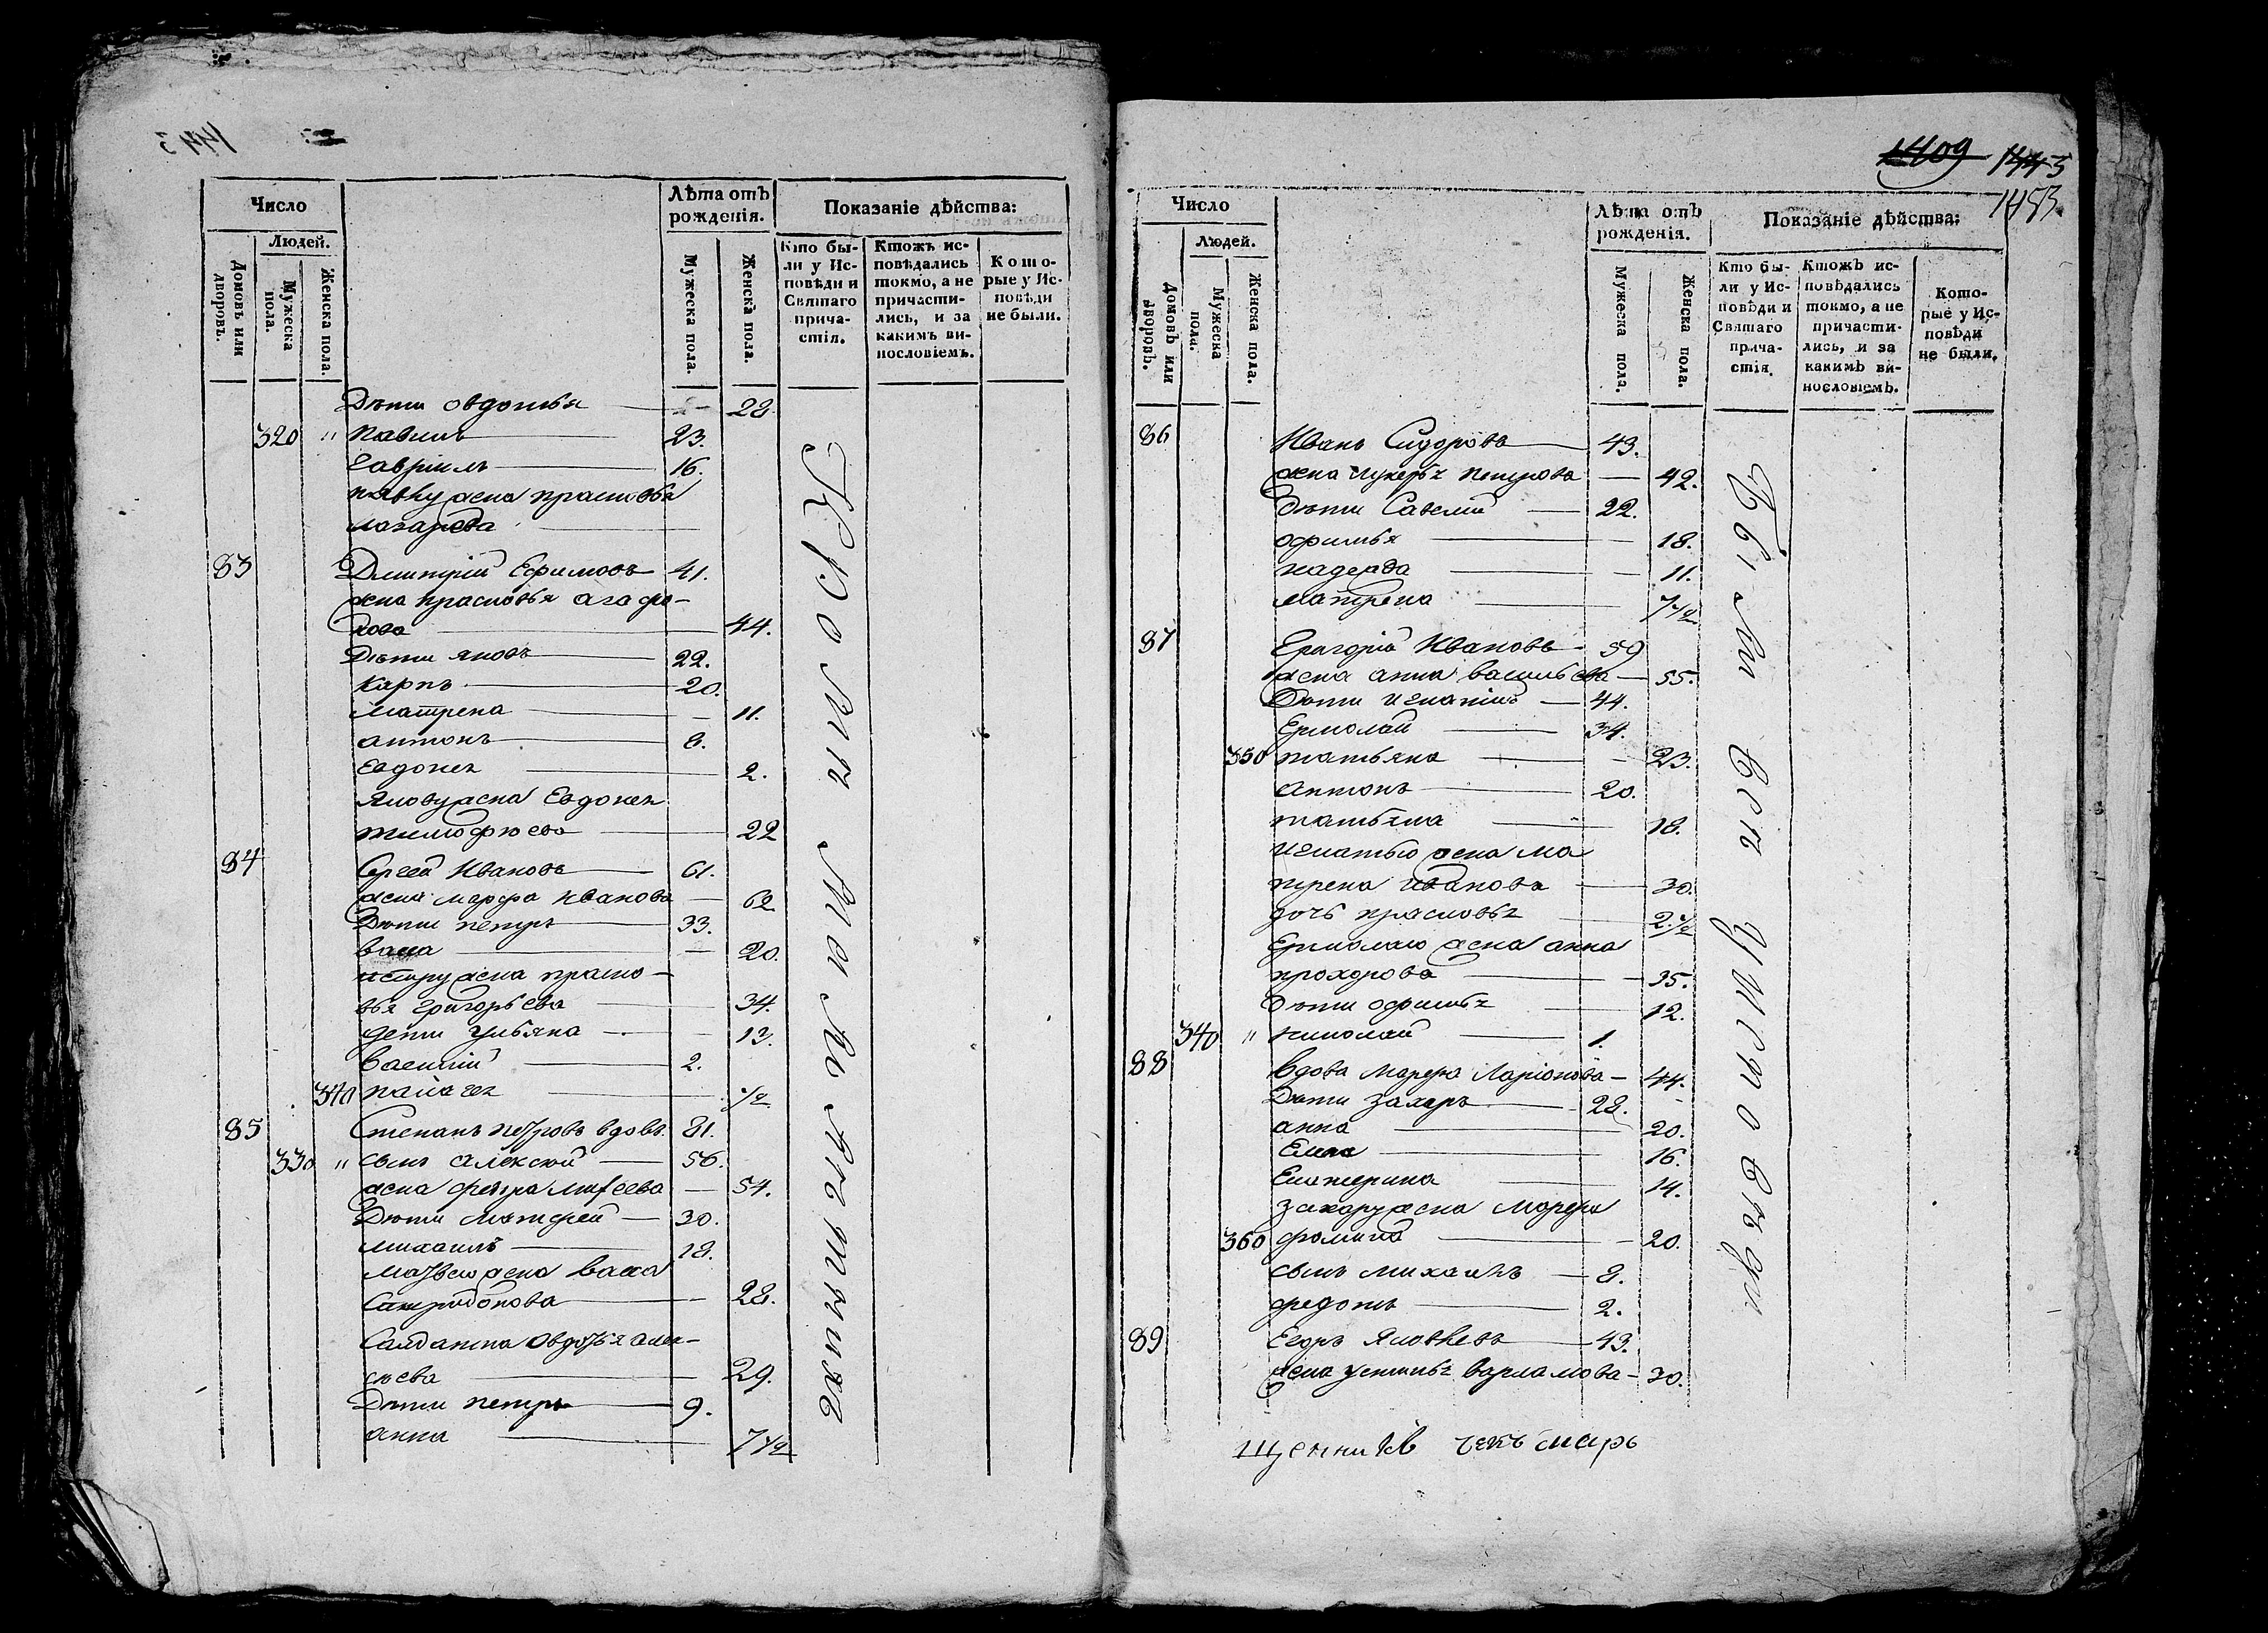 1443
Число
Лѣта отъ рожденія.
Показаніе дѣйства:
Людей.
Домовъ или дворовъ.
Мужеска пола.
Женска пола.
Мужеска пола.
Женска пола.
Кто были у Исповѣди и Святаго причастія.
Ктожъ исповѣдались токмо, а не причастились, и за какимъ винословіемъ.
Которые у Исповѣди не были.
Дѣти овдотья 28.
320 " павилъ 23.
Гавріилъ 16.
жена прасковья
лазарева
83 Дмитрій Ефимовъ 41.
жена прасковья агафо-
нова 44.
Дѣти яковъ 22.
Карпъ 20.
матрена 11.
антонъ 8.
Евдокея 2.
Якову жена Евдокея
тимофѣева 22
84 Сергей Ивановъ 61.
жена марфа иванова 62
Дѣти петръ 33.
васса 20.
петру жена праско-
вья григорьева 34.
дети ульяна 13.
василій 2.
340 1/2
85 Степанъ петровъ вдовъ 81.
330 " сынъ алексѣй 56.
жена михеева 54.
Дѣти матфей 30.
михаилъ 18.
матвею жена васса
спиридонова 28.
Салдатка Овдотья алек-
сѣева 29.
Дѣти петръ 9.
анна 7 1/2
1409 1445
1453.
Число
Лѣта отъ рожденія.
Показаніе дѣйства:
Людей.
Домовъ или дворовъ.
Мужеска пола.
Женска пола.
Мужеска пола.
Женска пола.
Кто были у Исповѣди и Святаго причастія.
Ктожъ исповѣдались токмо, а не причастились, и за какимъ винословіемъ.
Которые у Исповѣди не были.
86 Иванъ Сидоровъ 43.
жена лукерья петрова 42.
дѣти Савелій 22.
офимья 18.
надежда 11.
матрена 7 1/2
87 Григорій Ивановъ 59
жена анна васильева 55.
Дѣти игнатій 44.
Ермолай 34.
350 татьяна 23.
антонъ 20.
татьяна 18.
игнатью жена ма
трена иванова 30.
дочь прасковья 2 1/2
Ермолаю жена анна
прохорова 35.
дѣти офимья 12.
340 " николай 1.
88 вдова марфа Ларіонова 44.
Дѣти захаръ 28.
анна 20.
Елена 16.
Екатерина 14.
захару жена марфа
360 фомина 20.
сынъ михаилъ 8.
федотъ 2.
89 Егоръ Яковлевъ 43.
жена устинья варламова 30.
щенникъ